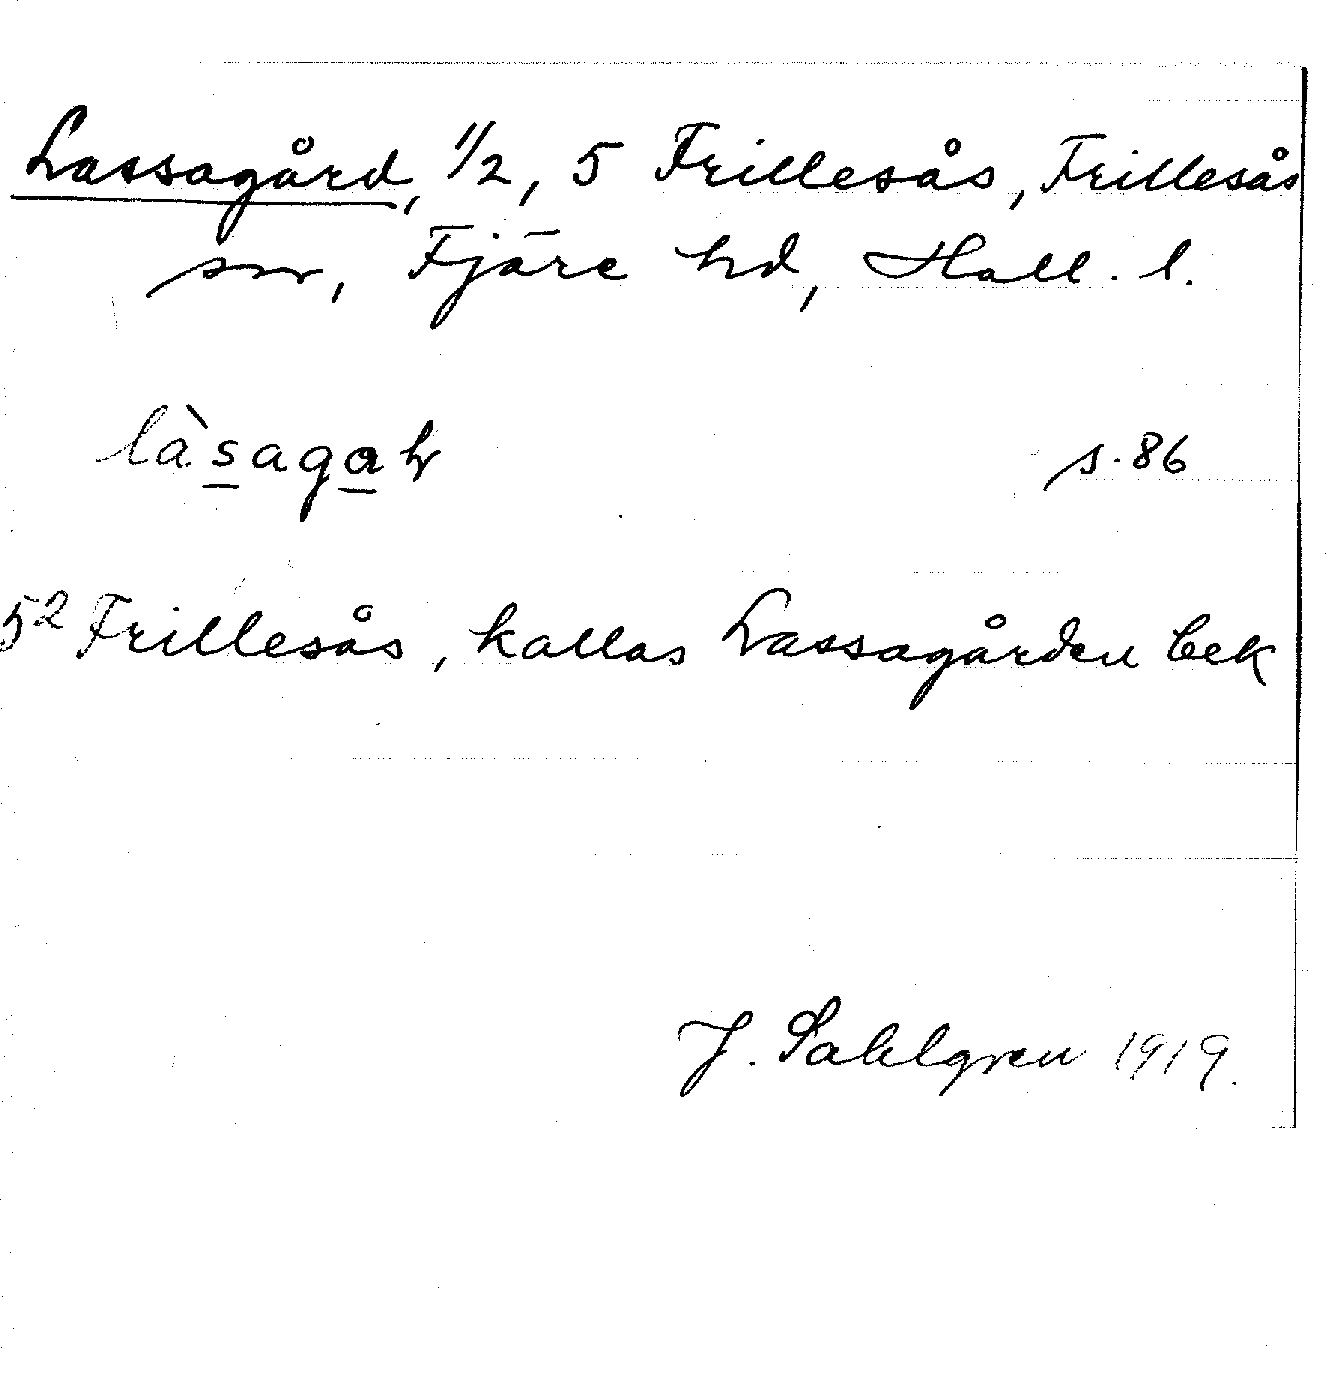 Lassagård, 1/2, 5 Frillesås, Frillesås
sn, Fjäre hd, Hall. l.
s. 86
5² Frillesås, kallas Lassagården bek
J. Sahlgren 1919.